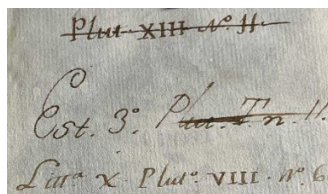 Plut XIII Nº. 11.
C
Est. 3º. Plut. T n. 11.
Littª X. Plutº. VIII. Nº. 6.